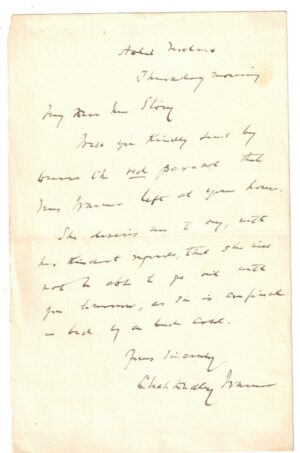 Hotel
Thursday morning
My Dear Mrs Story
Will you kindly send by
bearer the red parasol that
Mrs Warner left at your house.
She desires me to say, with
her kindest regards, that she will
not be able to go out with
you tomorrow, as she is confined
to bed by a bad cold.
Yours Sincerely
Chas. Dudley Warner